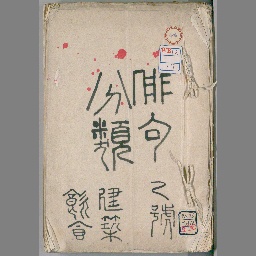 俳句
分類
乙號
建築
飲食